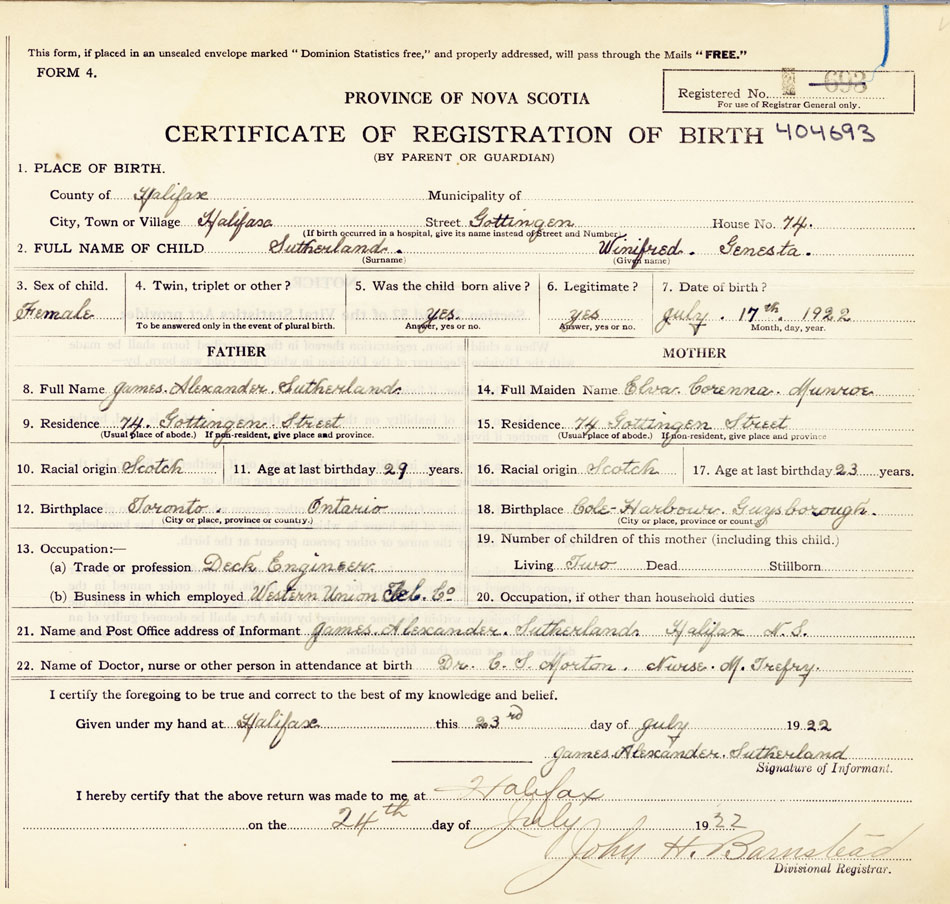 This form, if placed in an unsealed envelope marked "Dominion Statistics free," and properly addressed, will pass through the Mails "FREE."
FORM 4.
Registered No. 693
For use of Registrar General only.
PROVINCE OF NOVA SCOTIA
CERTIFICATE OF REGISTRATION OF BIRTH 404693
(BY PARENT OR GUARDIAN)
1. PLACE OF BIRTH.
County of Halifax Municipality of
City, Town or Village Halifax Street Gottingen House No. 74.
(If birth occurred in a hospital, give its name instead of Street and Number)
2. FULL NAME OF CHILD Sutherland. Winifred. Genesta.
(Surname) (Given name)
3. Sex of child. 4. Twin, triplet or other? 5. Was the child born alive? 6. Legitimate? 7. Date of birth?
Female yes. yes July. 17th. 1922
To be answered only in the event of plural birth. Answer, yes or no. Answer, yes or no. Month, day, year.
FATHER MOTHER
8. Full Name James. Alexander. Sutherland. 14. Full Maiden Name Elva. Corenna. Munroe
9. Residence 74. Gottingen Street 15. Residence 74 Gottingen Street
(Usual place of abode.) If non-resident, give place and province. (Usual place of abode.) If non-resident, give place and province
10. Racial origin Scotch 11. Age at last birthday 29 years. 16. Racial origin Scotch 17. Age at last birthday 23 years.
12. Birthplace Toronto. Ontario 18. Birthplace Cole-Harbour. Guysborough.
(City or place, province or country.) (City or place, province or country)
13. Occupation:— 19. Number of children of this mother (including this child.)
(a) Trade or profession Deck Engineer. Living Two Dead Stillborn
(b) Business in which employed Western Union Tel. Co 20. Occupation, if other than household duties
21. Name and Post Office address of Informant James. Alexander. Sutherland. Halifax N.S.
22. Name of Doctor, nurse or other person in attendance at birth Dr. E. S. Morton. Nurse. M. Trefry.
I certify the foregoing to be true and correct to the best of my knowledge and belief.
Given under my hand at Halifax this 23rd day of July 1922
James. Alexander. Sutherland
Signature of Informant.
I hereby certify that the above return was made to me at Halifax
on the 24th day of July 1922
John H. Barnstead
Divisional Registrar.